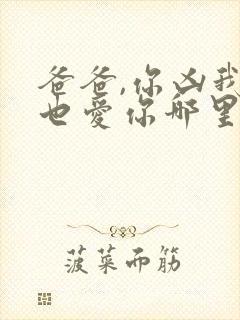 爸爸,你凶我
也爱你哪里
菠菜而筋